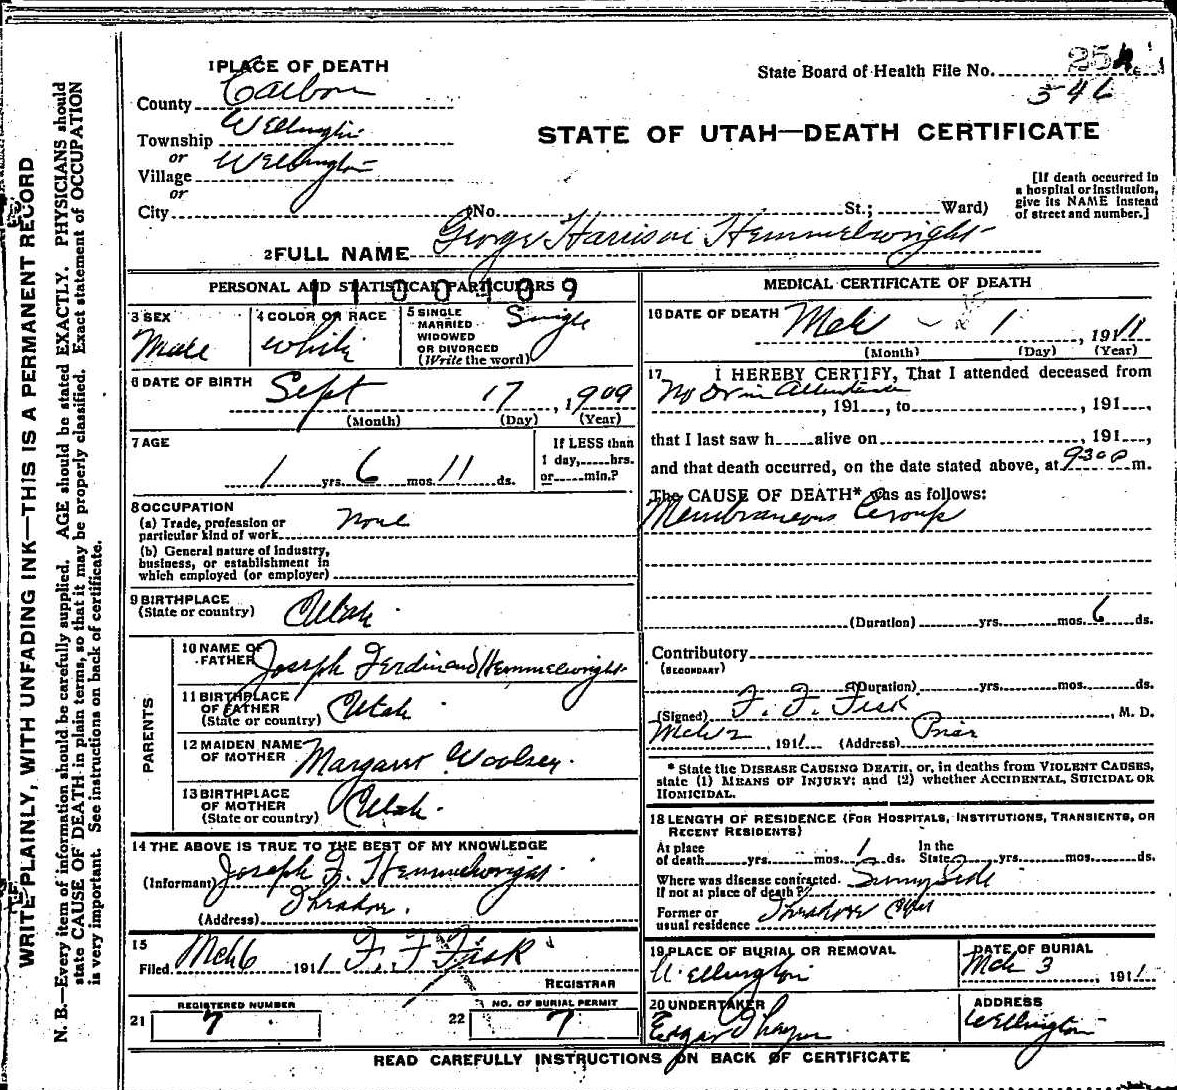 WRITE PLAINLY, WITH UNFADING INK—THIS IS A PERMANENT RECORD
N. B.—Every item of information should be carefully supplied. AGE should be stated EXACTLY. PHYSICIANS should
state CAUSE OF DEATH in plain terms, so that it may be properly classified. Exact statement of OCCUPATION
is very important. See instructions on back of certificate.
1 PLACE OF DEATH
County Carbon
Township Wellington
or
Village Wellington
or
City (No. St.; Ward)
State Board of Health File No. 25
546
STATE OF UTAH—DEATH CERTIFICATE
[If death occurred in
a hospital or institution,
give its NAME instead
of street and number.]
2 FULL NAME George Harrison Hemmelwright
PERSONAL AND STATISTICAL PARTICULARS
1100109
3 SEX
Male
4 COLOR OR RACE
White
5 SINGLE
MARRIED
WIDOWED
OR DIVORCED
(Write the word)
Single
6 DATE OF BIRTH
Sept 17, 1909
(Month) (Day) (Year)
7 AGE
1 yrs. 6 mos. 11 ds.
If LESS than
1 day, hrs.
or min.?
8 OCCUPATION
(a) Trade, profession or
particular kind of work None
(b) General nature of industry,
business, or establishment in
which employed (or employer)
9 BIRTHPLACE
(State or country) Utah
PARENTS
10 NAME OF
FATHER Joseph Ferdinand Hemmelwright
11 BIRTHPLACE
OF FATHER
(State or country) Utah
12 MAIDEN NAME
OF MOTHER Margaret Woolsey
13 BIRTHPLACE
OF MOTHER
(State or country) Utah
14 THE ABOVE IS TRUE TO THE BEST OF MY KNOWLEDGE
(Informant) Joseph F. Hemmelwright
(Address)
15
Filed Mch 6 1911 F. F. Fisk
REGISTRAR
REGISTERED NUMBER
21 7
NO. OF BURIAL PERMIT
22 7
MEDICAL CERTIFICATE OF DEATH
16 DATE OF DEATH
Mch 1, 1911
(Month) (Day) (Year)
17 I HEREBY CERTIFY, That I attended deceased from
No Dr in Attendance, 191 , to , 191 ,
that I last saw h alive on , 191 ,
and that death occurred, on the date stated above, at 9 30 P m.
The CAUSE OF DEATH* was as follows:
Membraneous Croup
(Duration) yrs. mos. 6 ds.
Contributory
(SECONDARY)
(Duration) yrs. mos. ds.
(Signed) F. F. Fisk, M. D.
Mch 2, 1911 (Address) Price
* State the DISEASE CAUSING DEATH, or, in deaths from VIOLENT CAUSES,
state (1) MEANS OF INJURY; and (2) whether ACCIDENTAL, SUICIDAL OR
HOMICIDAL.
18 LENGTH OF RESIDENCE (FOR HOSPITALS, INSTITUTIONS, TRANSIENTS, OR
RECENT RESIDENTS)
At place
of death yrs. mos. ds.
In the
State yrs. mos. ds.
Where was disease contracted.
If not at place of death? Sunnyside
Former or
usual residence
19 PLACE OF BURIAL OR REMOVAL
Wellington
DATE OF BURIAL
Mch 3, 1911
20 UNDERTAKER
Edgar Thayn
ADDRESS
Wellington
READ CAREFULLY INSTRUCTIONS ON BACK OF CERTIFICATE